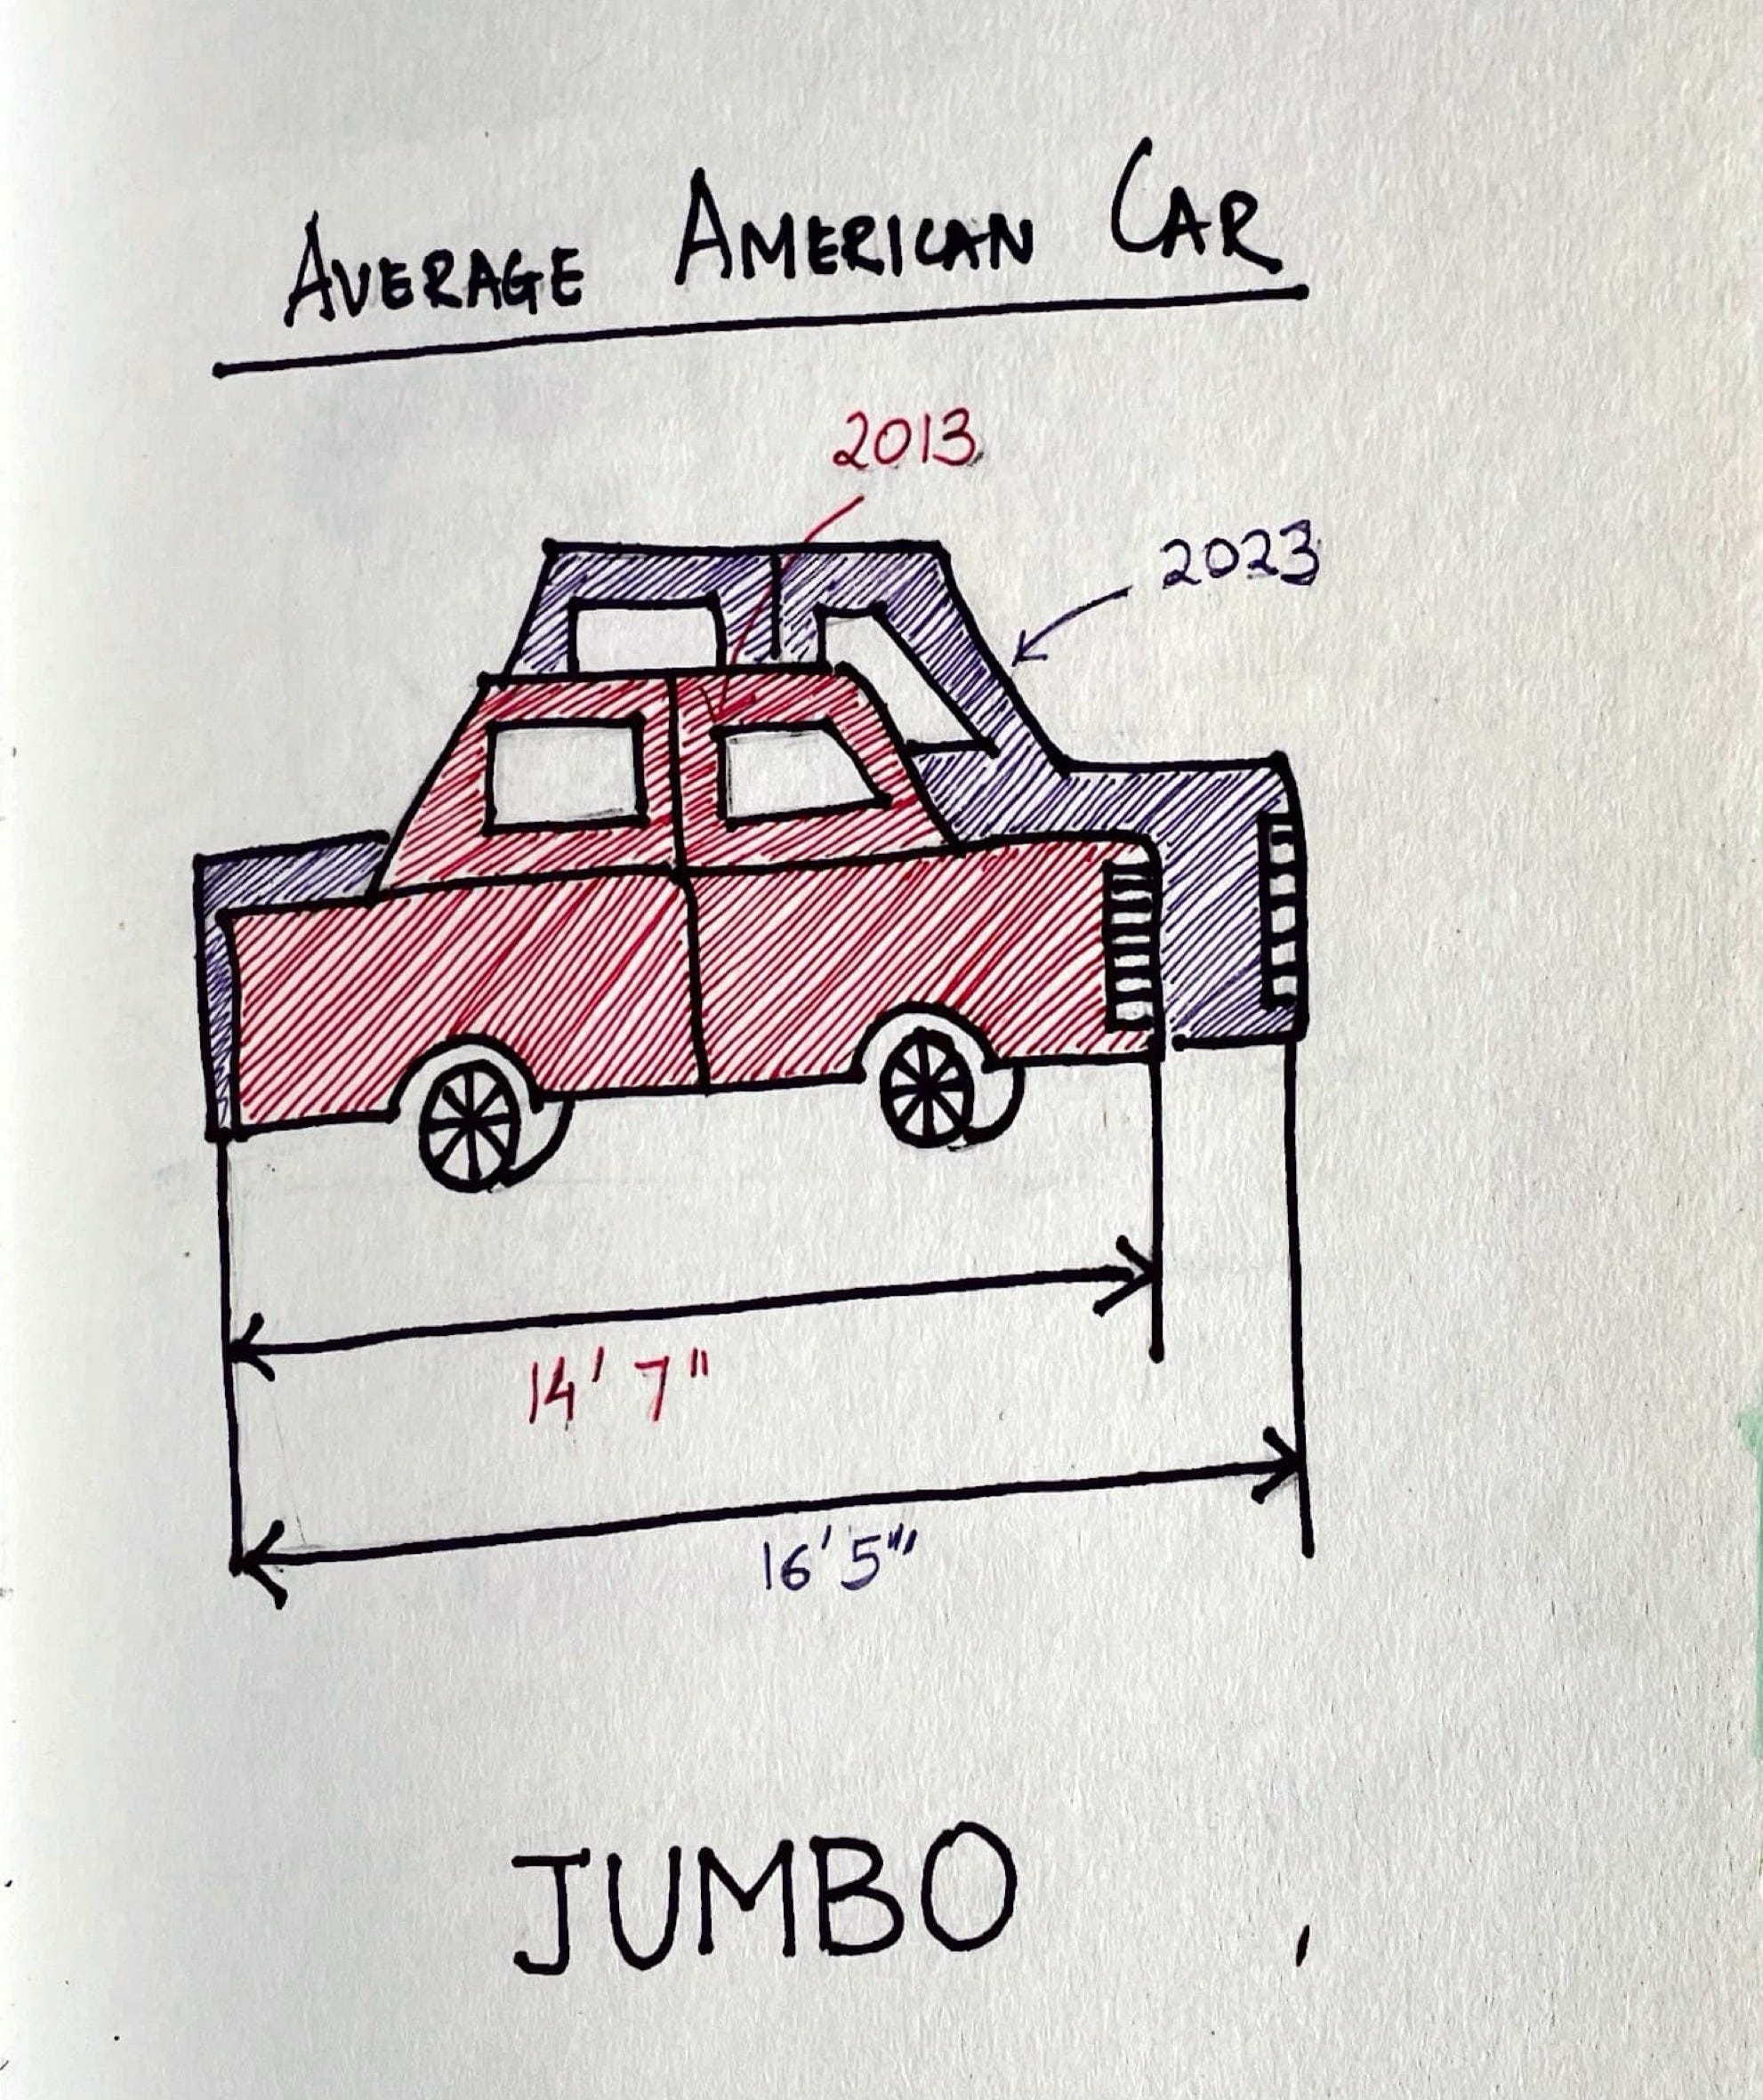 AVERAGE AMERICAN CAR
2013
2023
14' 7"
16' 5"'
JUMBO